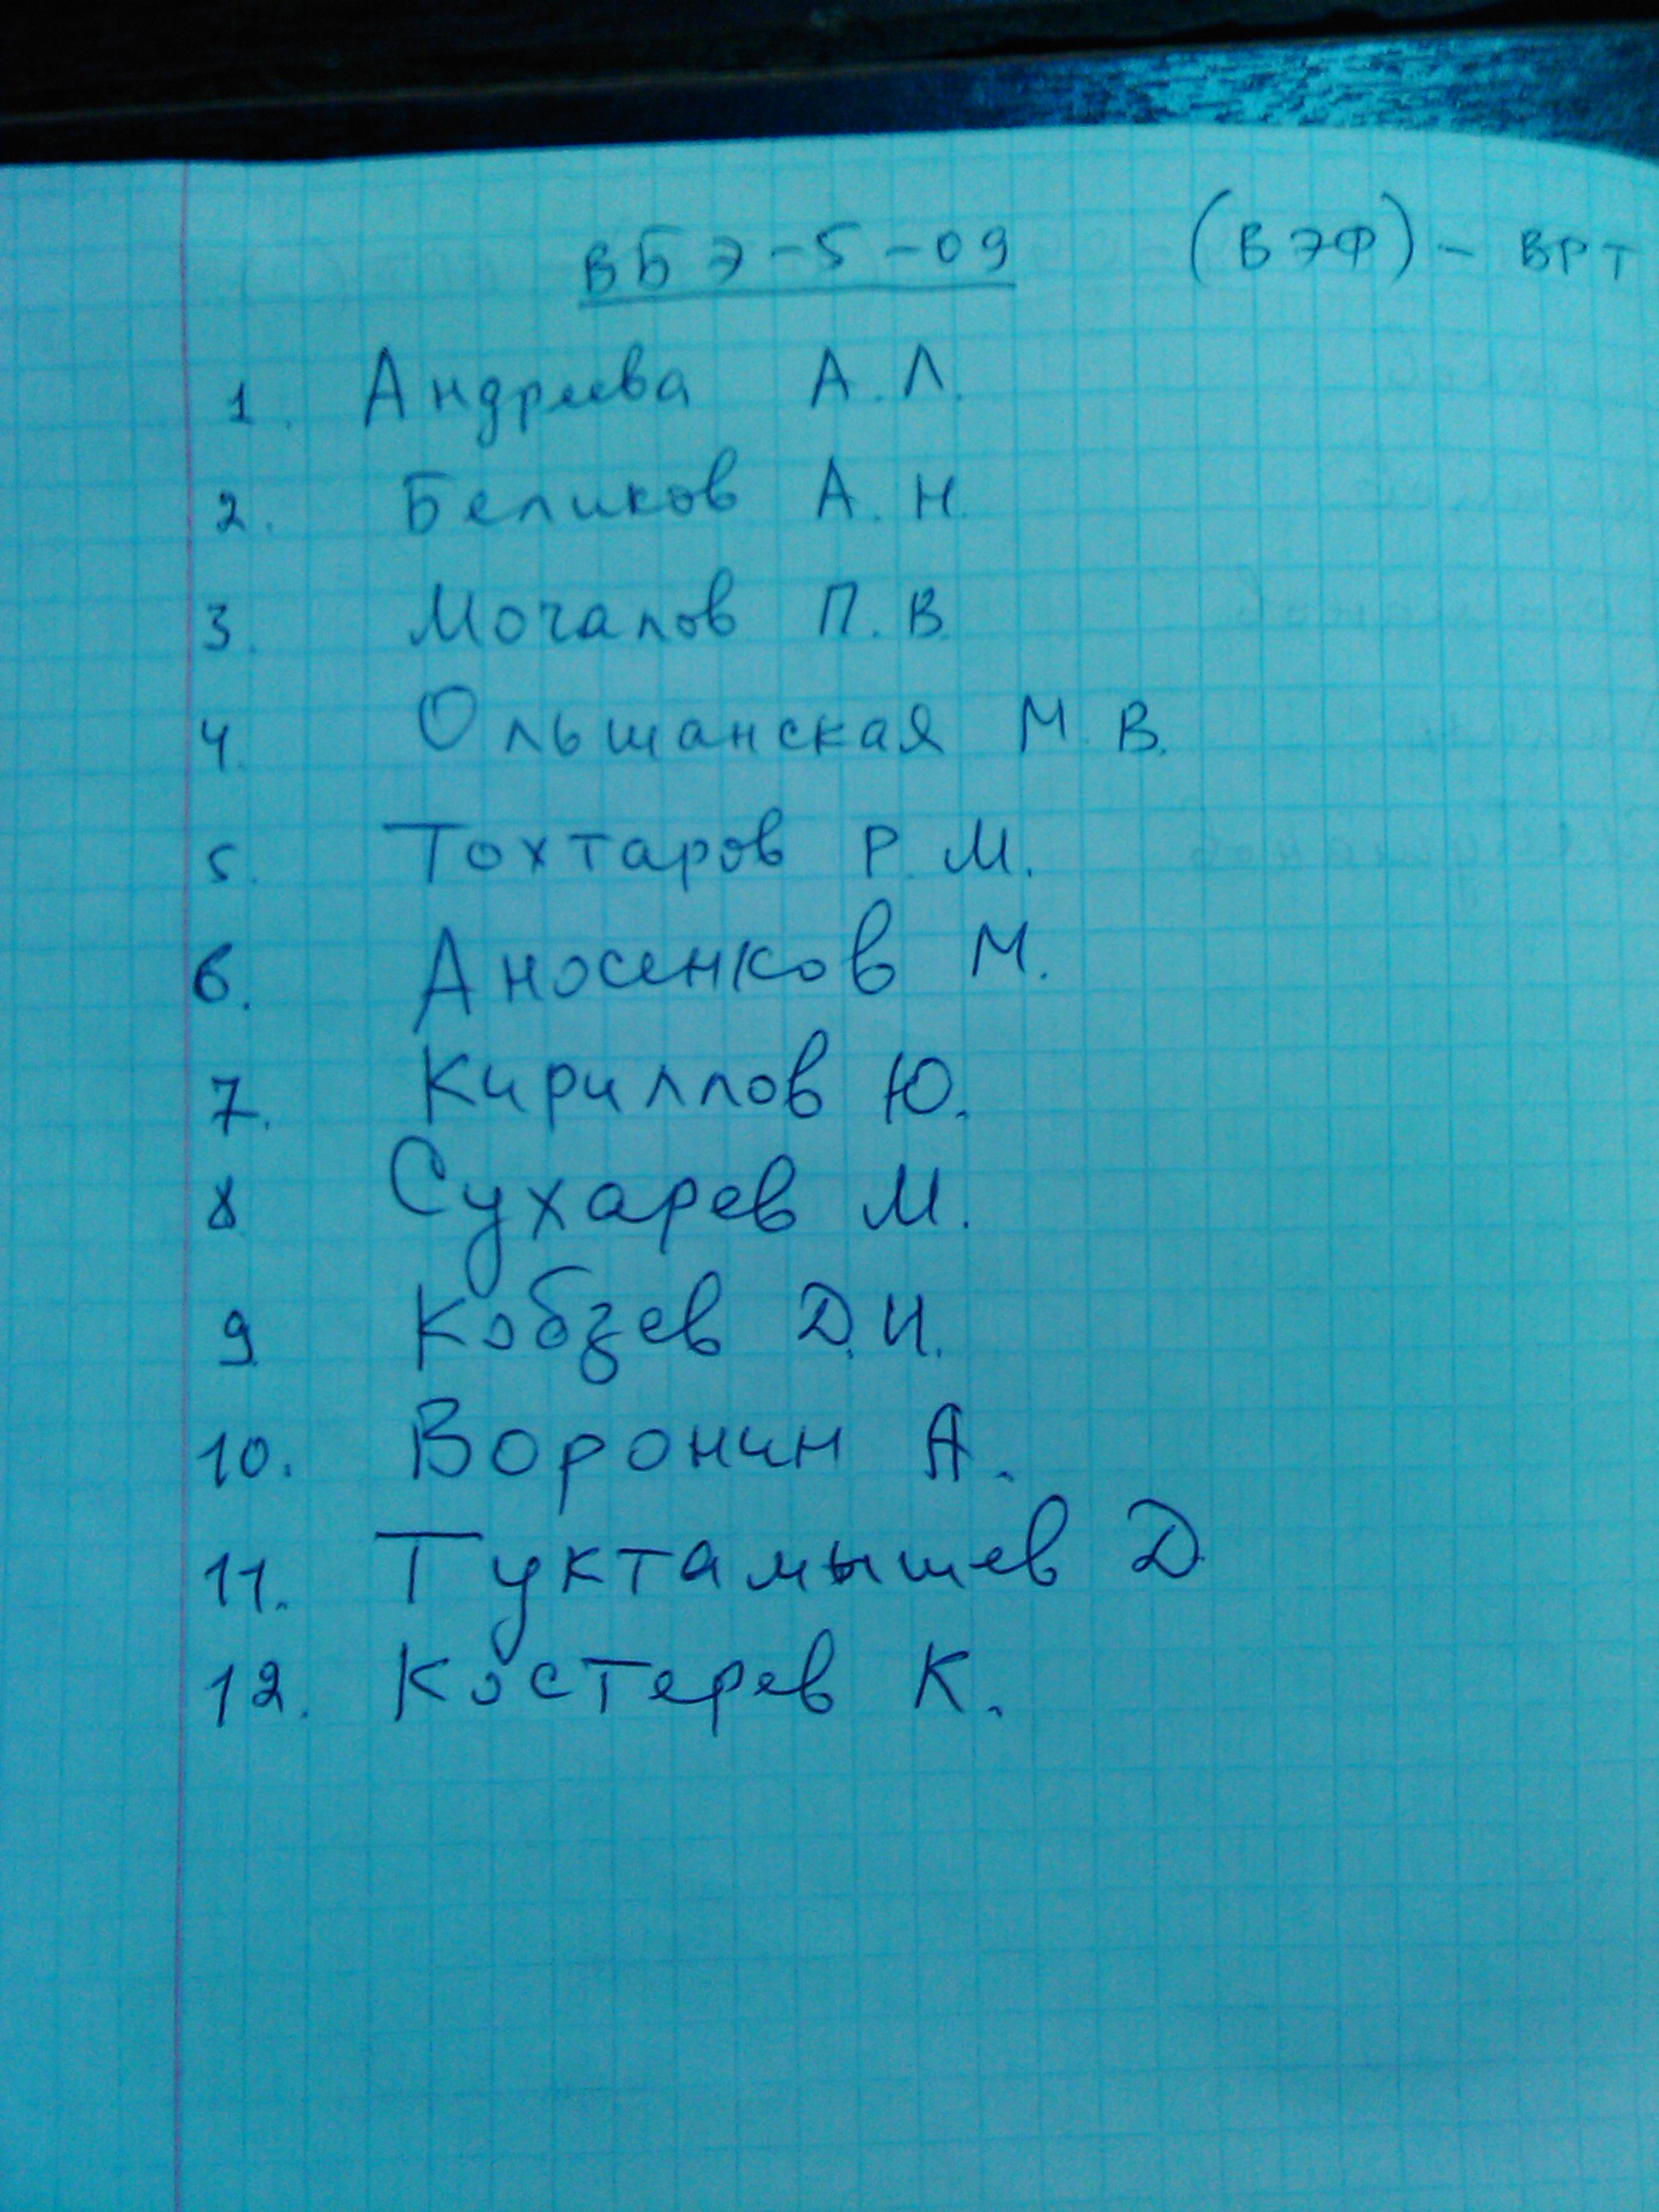 ВБЭ-5-09 (ВЭФ) - ВРТ
1. Андреева А. Л.
2. Беликов А. Н.
3. Мочалов П. В.
4. Ольшанская М. В.
5. Тохтаров Р. М.
6. Аносенков М.
7. Кириллов Ю.
8 Сухарев М.
9 Кобзев Д.И.
10. Воронин А.
11. Туктамышев Д.
12. Костерев К.